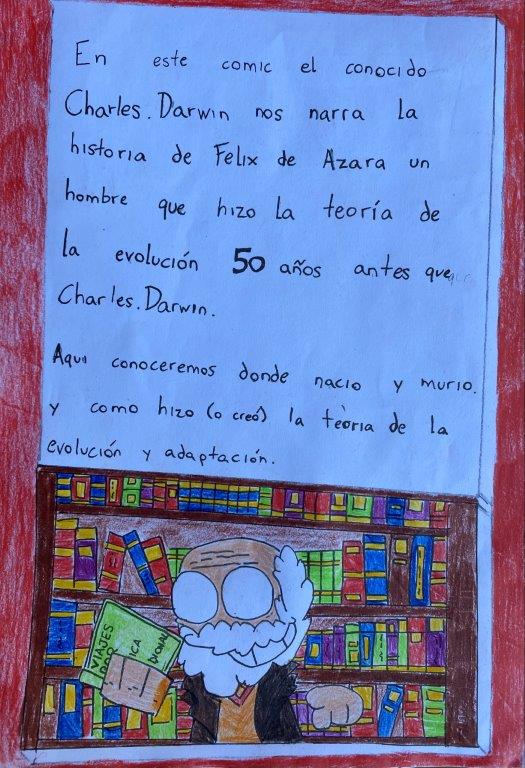 En este comic el conocido
Charles. Darwin nos narra la
historia de Felix de Azara un
hombre que hizo la teoría de
la evolución 50 años antes que
Charles. Darwin.
Aqui conoceremos donde nacio y murio.
y como hizo (o creó) la teoria de la
evolución y adaptación.
VIAJES
POR
ICA
DIONAL